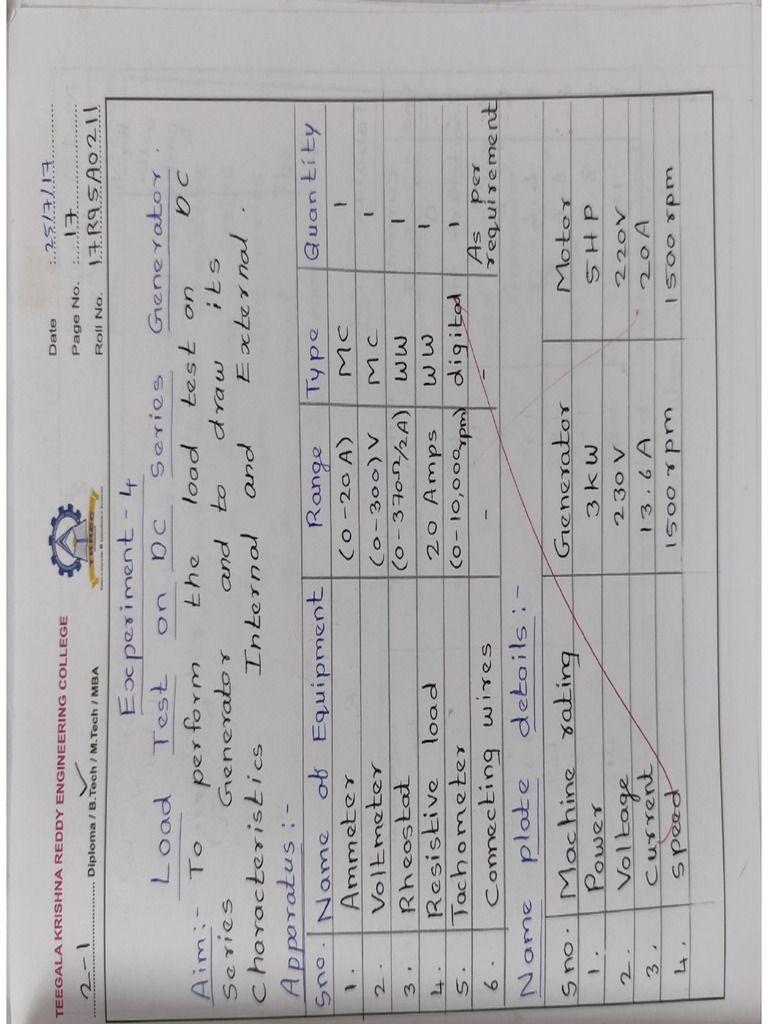 TEEGALA KRISHNA REDDY ENGINEERING COLLEGE
2-1 Diploma / B.Tech / M.Tech / MBA
Date : 25/7/17
Page No. : 17
Roll No. 17R95A0211
Experiment-4
Load Test on DC Series Generator.
Aim:- To perform the load test on DC
Series Generator and to draw its
Characteristics Internal and External.
Apparatus:-
Sno. Name of Equipment Range Type Quantity
1. Ammeter (0-20A) MC 1
2. Voltmeter (0-300)V MC 1
3. Rheostat (0-370Ω/2A) WW 1
4. Resistive load 20 Amps WW 1
5. Tachometer (0-10,000rpm) digital 1
6. Connecting wires - - As per requirement
Name plate details:-
Sno. Machine rating Generator Motor
1. Power 3KW 5HP
2. Voltage 230V 220V
3. Current 13.6A 20A
4. Speed 1500rpm 1500rpm